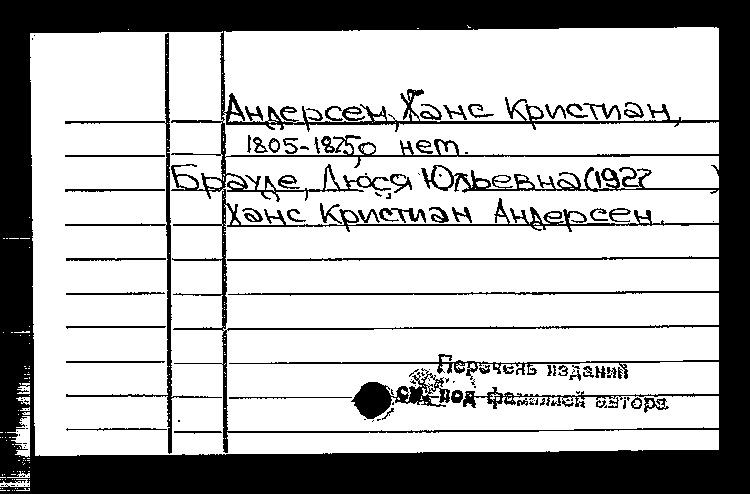 Андерсен, Ханс Кристиан,
1805-1875, о нем.
Брауде, Люся Юльевна (1927 )
Ханс Кристиан Андерсен.
Перечень изданий
см. под фамилией автора